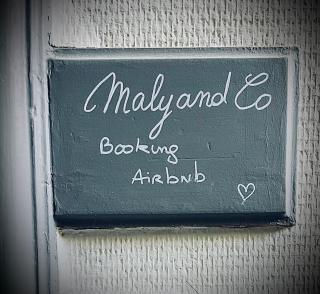 Malyand Co
Booking
Airbnb